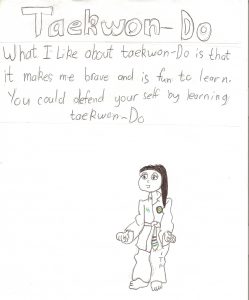 Taekwon-Do
What I Like about taekwon-Do is that
it makes me brave and is fun to learn.
You could defend your self by learning
taekwon-Do